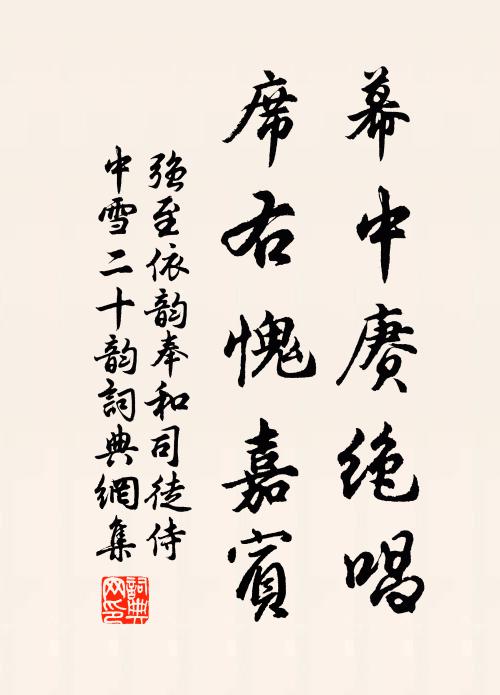 幕中赓绝唱
席右愧嘉賓
強至依韵奉和司徒侍
中雪二十韵詞典網集
詞典网印